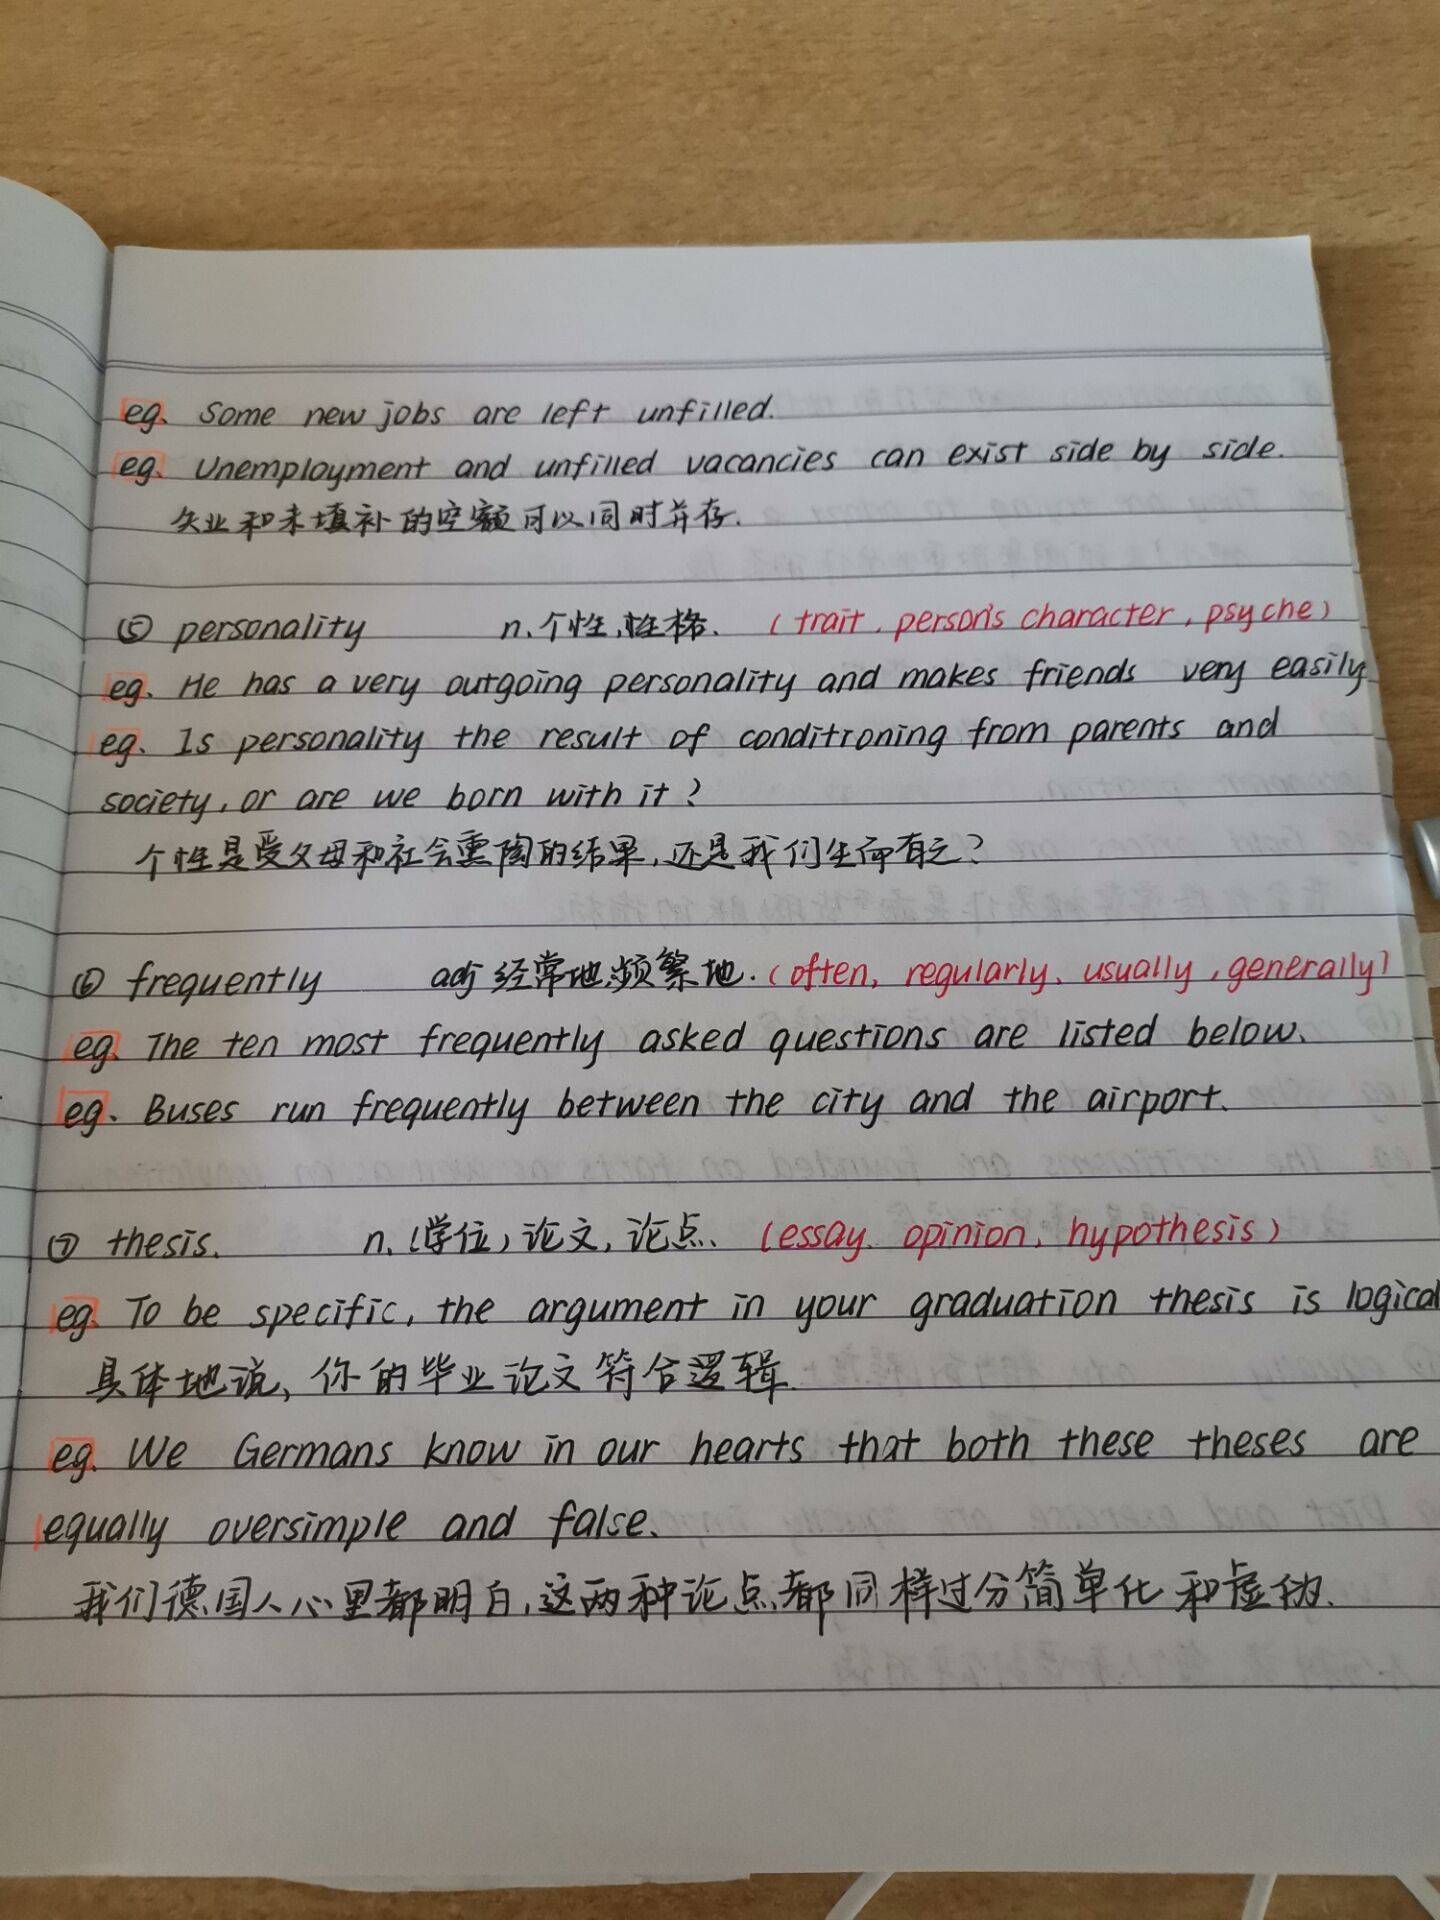 eg. Some new jobs are left unfilled.
eg. Unemployment and unfilled vacancies can exist side by side.
失业和未填补的空额可以同时并存.
⑤ personality n. 个性,性格. (trait, person's character, psyche)
eg. He has a very outgoing personality and makes friends very easily
eg. Is personality the result of conditioning from parents and
society, or are we born with it?
个性是受父母和社会熏陶的结果,还是我们生而有之?
⑥ frequently adj 经常地,频繁地. (often, regularly, usually, generally)
eg. The ten most frequently asked questions are listed below.
eg. Buses run frequently between the city and the airport.
⑦ thesis. n. (学位)论文,论点. (essay, opinion, hypothesis)
eg. To be specific, the argument in your graduation thesis is logical
具体地说,你的毕业论文符合逻辑.
eg. We Germans know in our hearts that both these theses are
equally oversimple and false.
我们德国人心里都明白,这两种论点都同样过分简单化和虚伪.